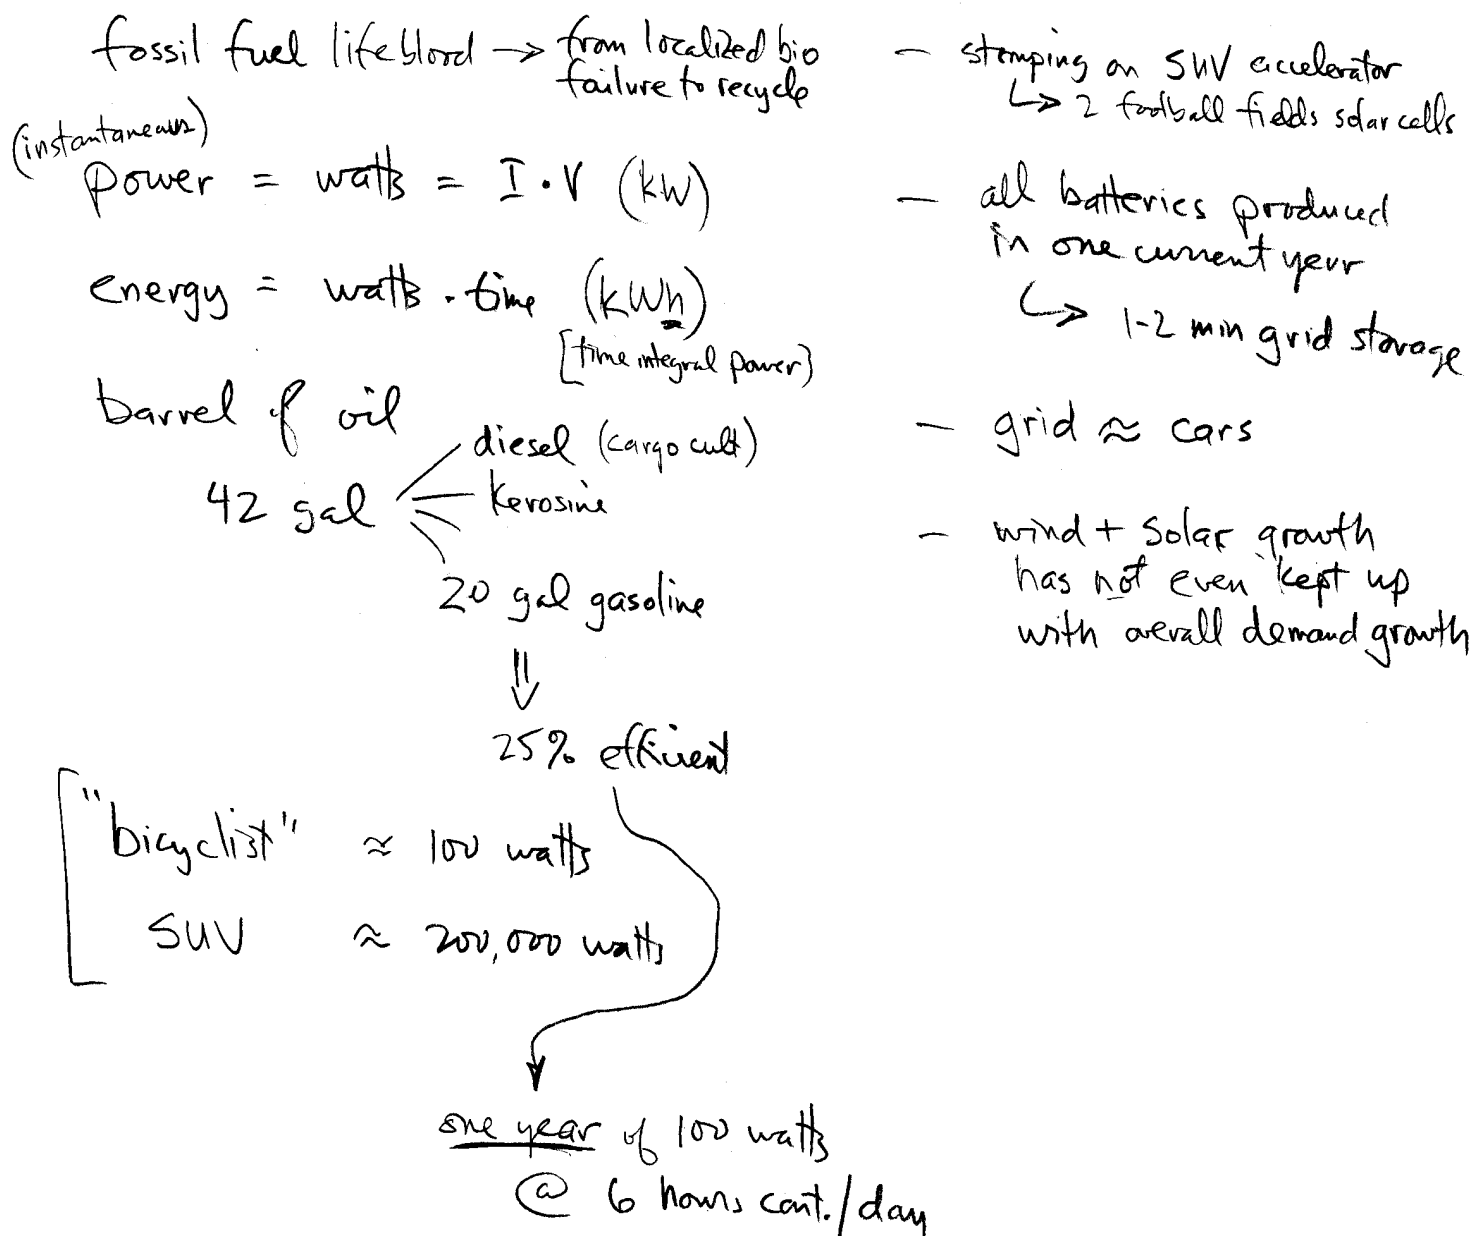 fossil fuel lifeblood → from localized bio
failure to recycle
(instantaneous)
power = watts = I · V (kW)
energy = watts · time (kWh)
[time integral power]
barrel of oil
42 gal
diesel (cargo cult)
kerosine
20 gal gasoline
⇓
25% efficient
"bicyclist" ≈ 100 watts
SUV ≈ 200,000 watts
one year of 100 watts
@ 6 hours cont./day
– stomping on SUV accelerator
↳ 2 football fields solar cells
– all batteries produced
in one current year
↳ 1-2 min grid storage
– grid ≈ cars
– wind + solar growth
has not even kept up
with overall demand growth